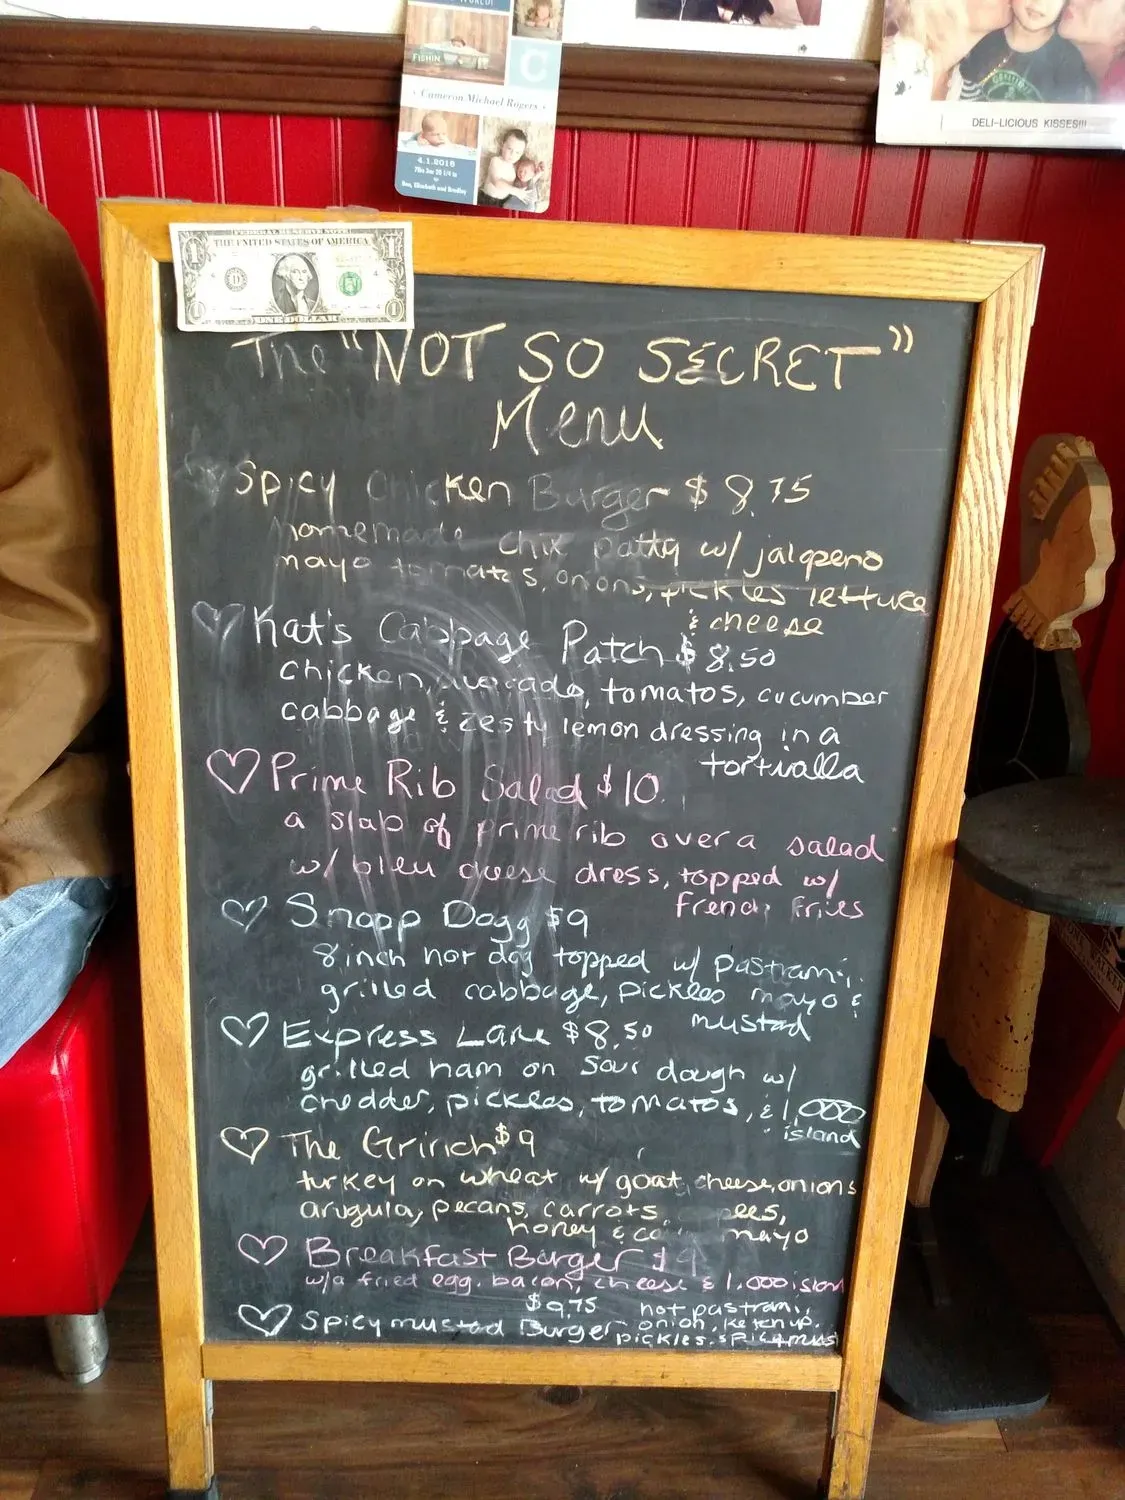 FISHIN
C
Cameron Michael Rogers
4.1.2016
Ben, Elizabeth and Bradley
DELI-LICIOUS KISSES!!!
FEDERAL RESERVE NOTE
THE UNITED STATES OF AMERICA
1
1
1
1
ONE DOLLAR
The "NOT SO SECRET"
Menu
Spicy Chicken Burger $8.75
homemade chix patty w/ jalapeno
mayo tomatos, onions, pickles lettuce
& cheese
Kat's Cabbage Patch $8.50
chicken, avocado, tomatos, cucumber
cabbage & zesty lemon dressing in a
tortialla
Prime Rib Salad $10
a slab of prime rib over a salad
w/ bleu cheese dress, topped w/
french fries
Snopp Dogg $9
8 inch hot dog topped w/ pastrami,
grilled cabbage, pickles mayo &
mustad
Express Lane $8.50
grilled ham on sour dough w/
chedder, pickles, tomatos, & 1,000
island
The Grinch $9
turkey on wheat w/ goat cheese, onions
arugula, pecans, carrots,
honey & mayo
Breakfast Burger $9
w/a fried egg, bacon, cheese & 1,000 island
$9.75 hot pastrami,
Spicy mustad Burger onion, ketchup,
pickles, spicy mus
WALKER